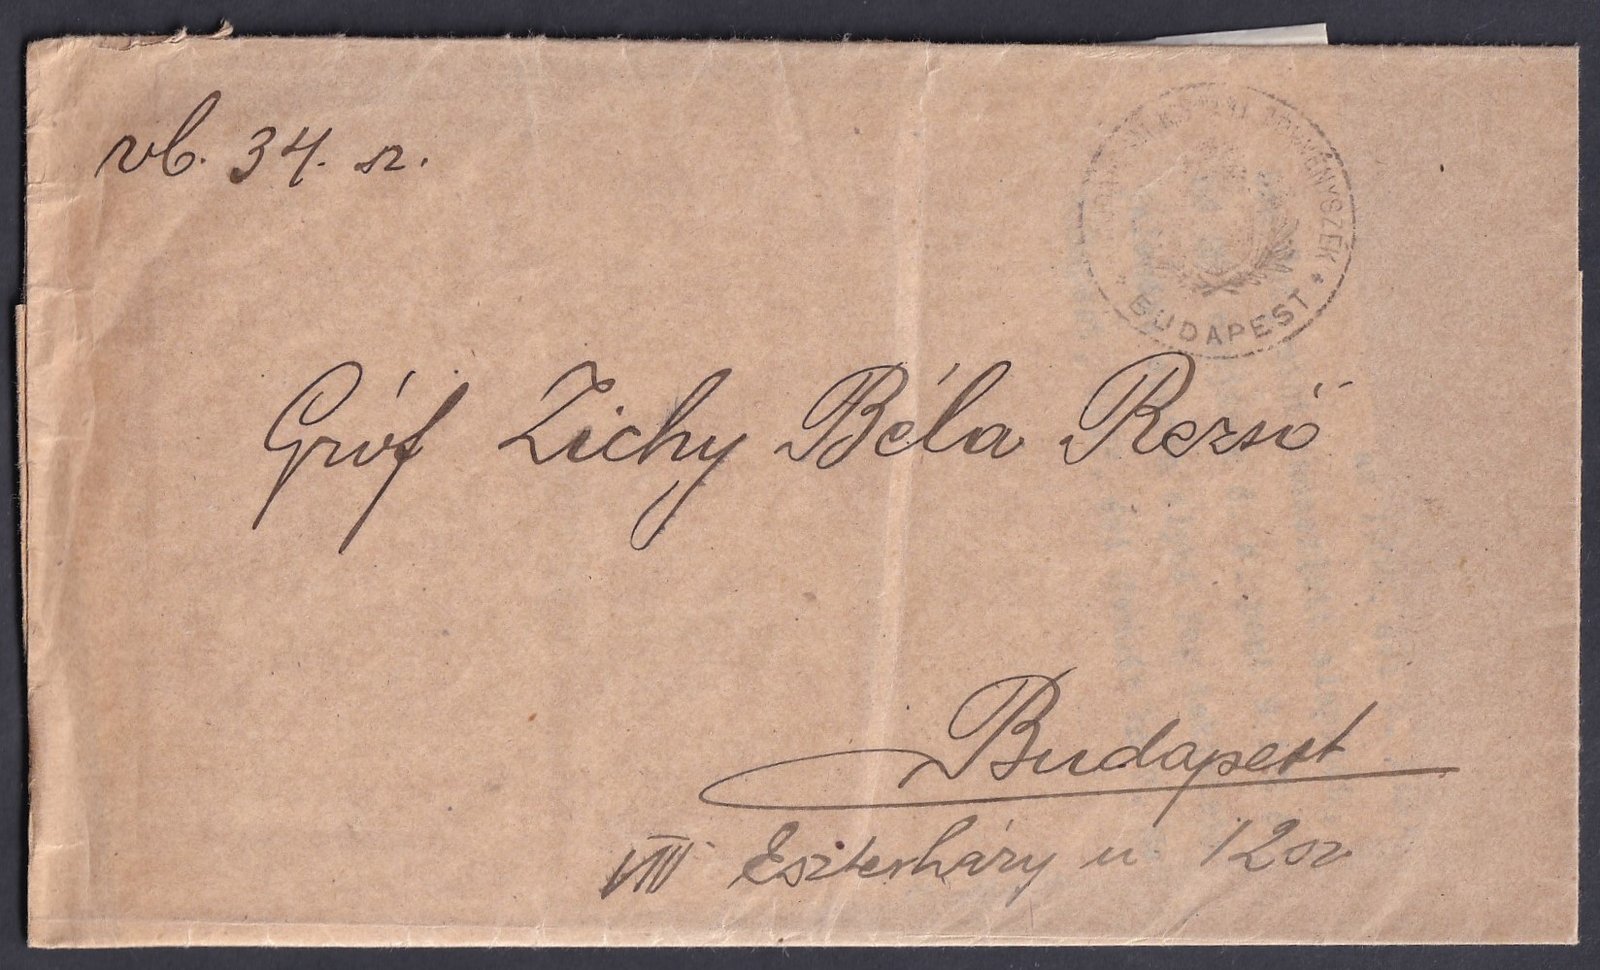 vb. 34. sz.
TÖRVÉNYSZÉK
BUDAPEST
Gróf Zichy Béla Rezső
Budapest
VIII Eszterházy u. 12 sz